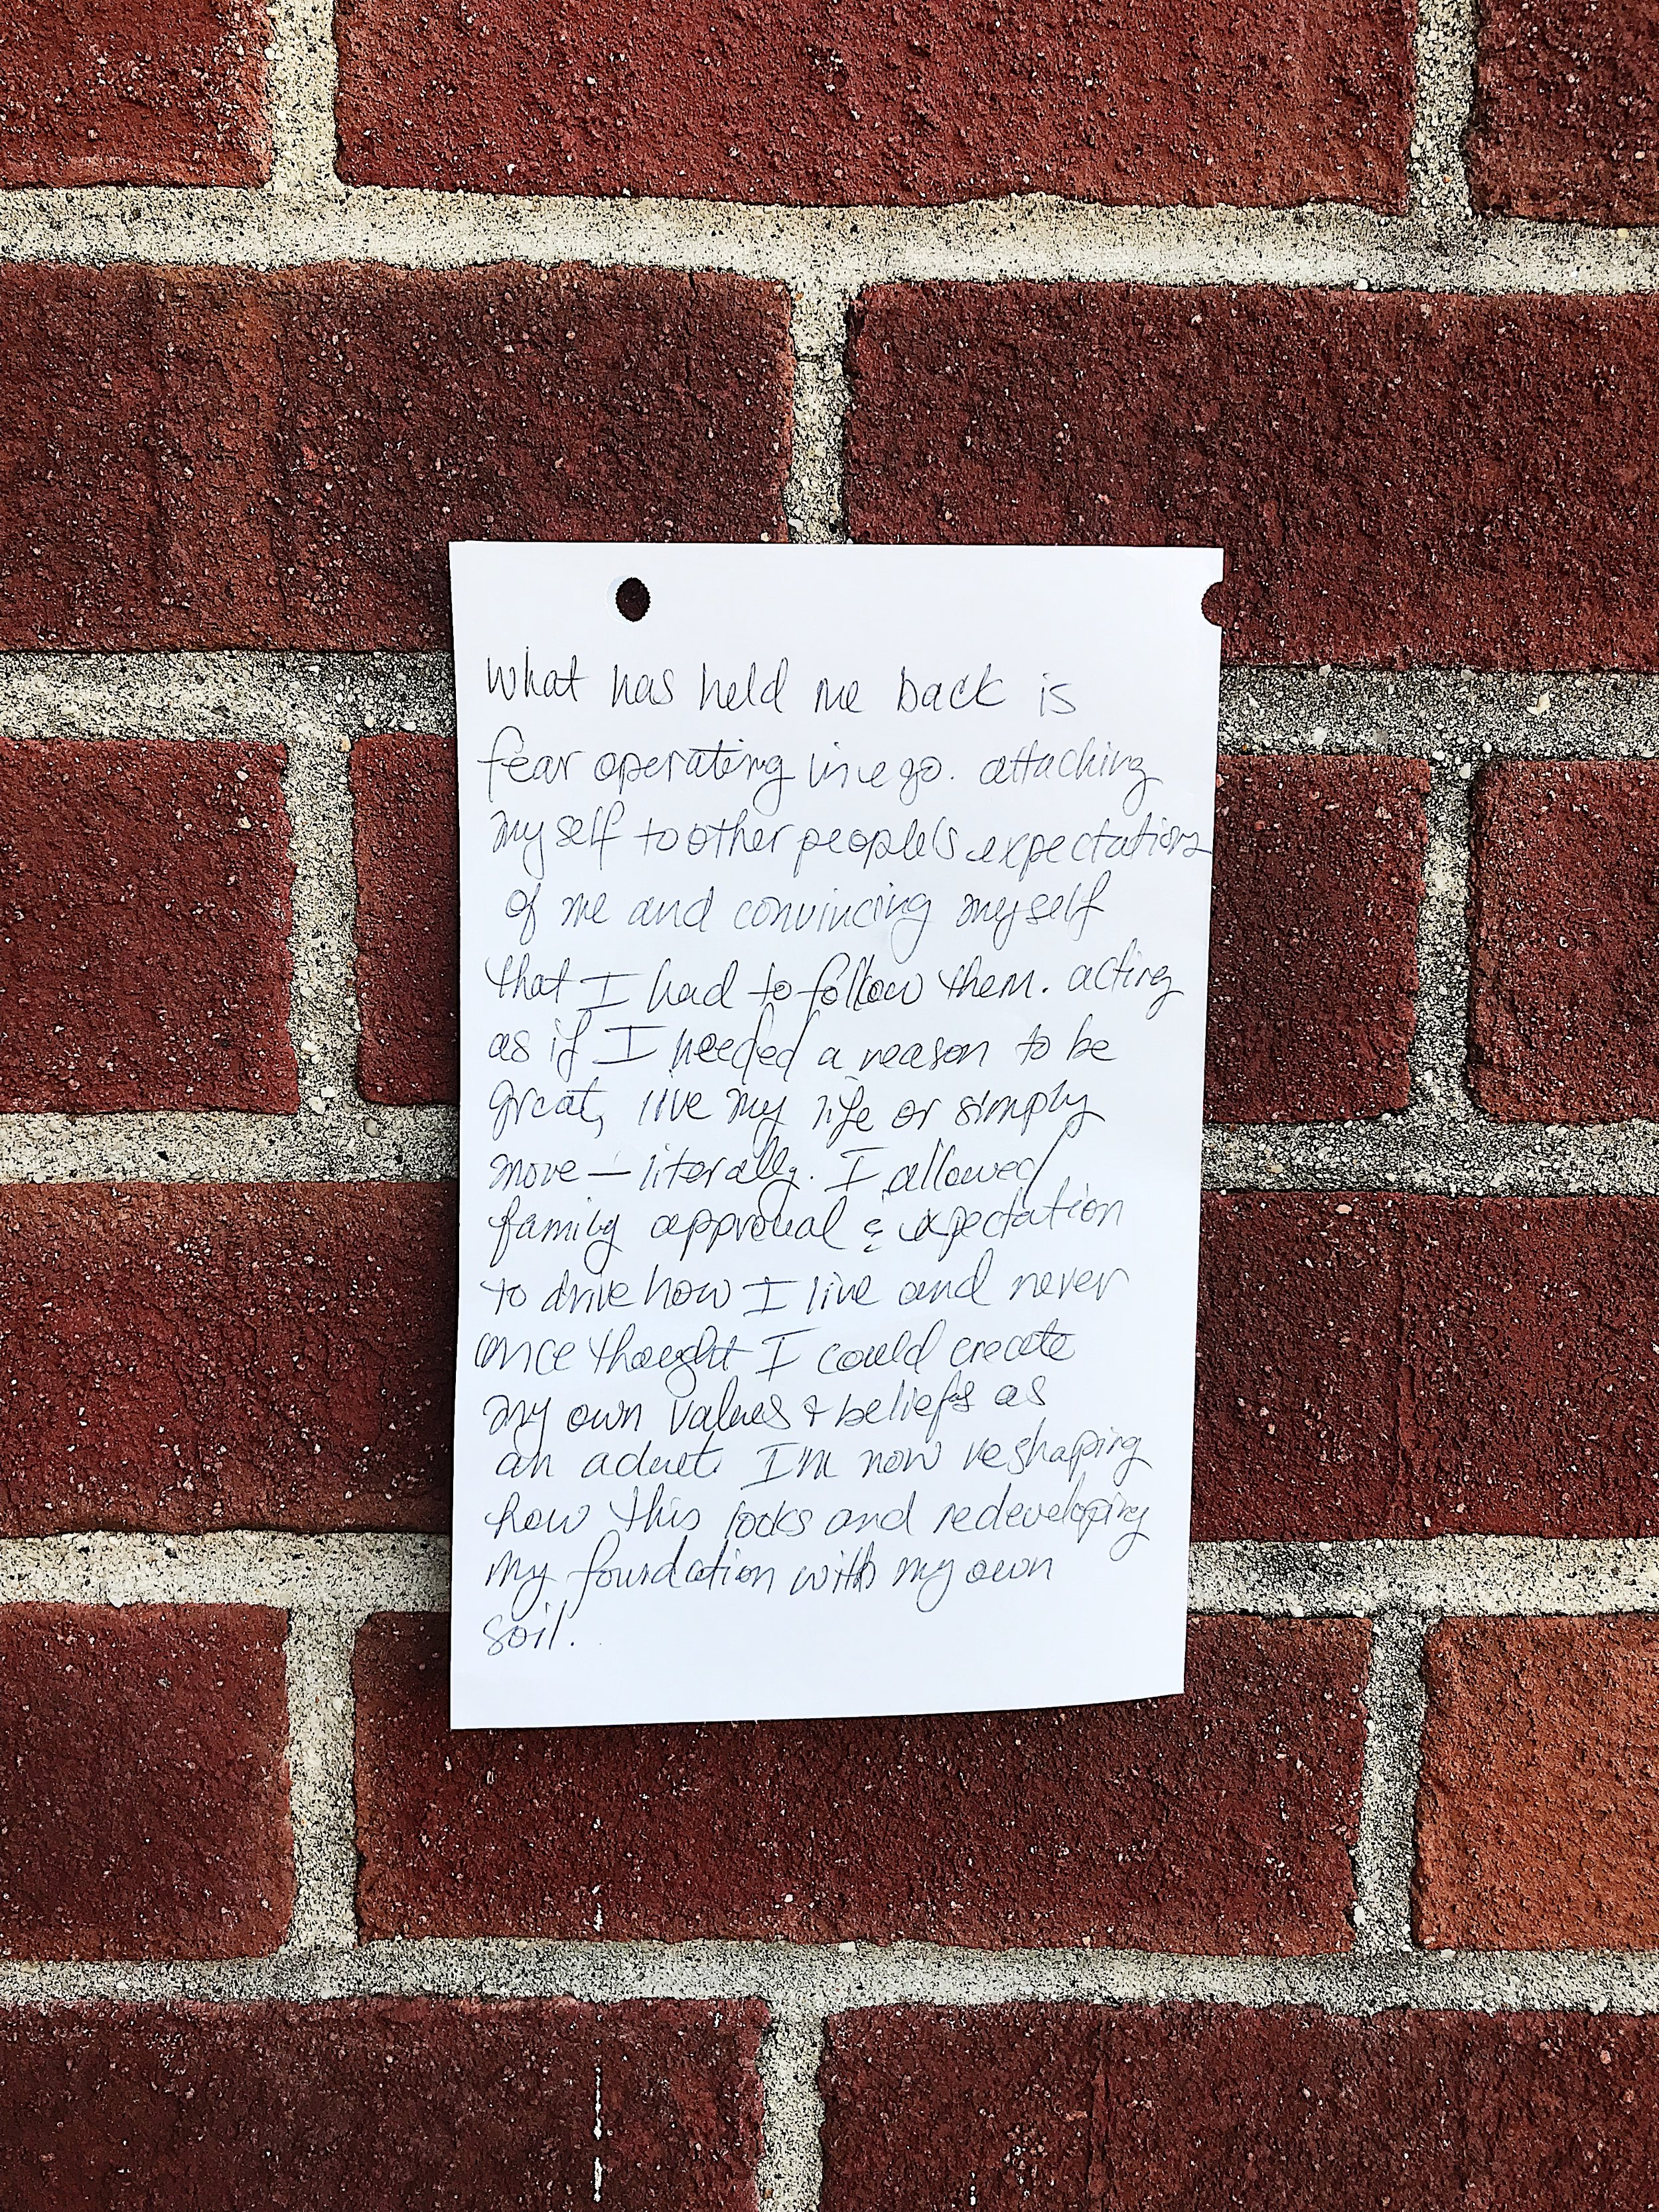 what has held me back is
fear operating in ego. attaching
myself to other people's expectations
of me and convincing myself
that I had to follow them. acting
as if I needed a reason to be
great, live my life or simply
move — literally. I allowed
family approval & expectation
to drive how I live and never
once thought I could create
my own values & beliefs as
an adult. I'm now reshaping
how this looks and redeveloping
my foundation with my own
soil.